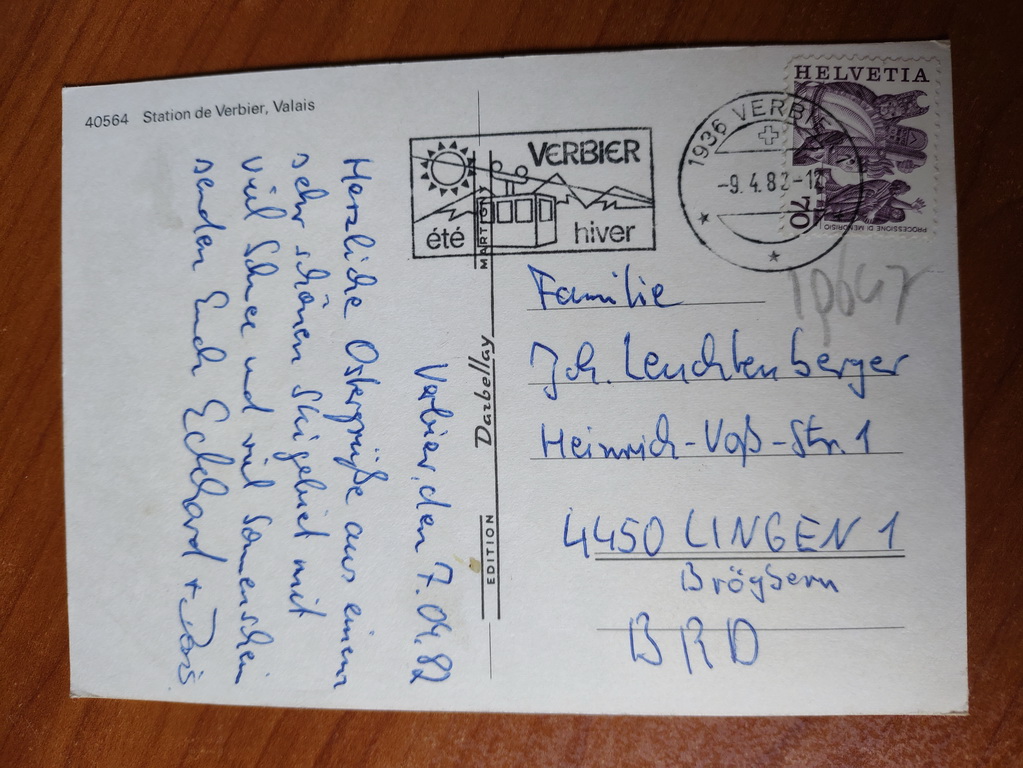 40564 Station de Verbier, Valais
Verbier, den 7.04.82
Herzliche Ostergrüße aus einem
sehr schönen Skigebiet mit
viel Schnee und viel Sonnenschein
senden Euch Eckhard + Doris
EDITION Darbellay MARTIGNY
VERBIER
été hiver
1936 VERBIER
-9.4.82-12
HELVETIA
70
PROCESSIONE DI MENDRISIO
Familie
Joh. Leuchtenberger
Heinrich-Voß-Str. 1
4450 LINGEN 1
Brögbern
BRD